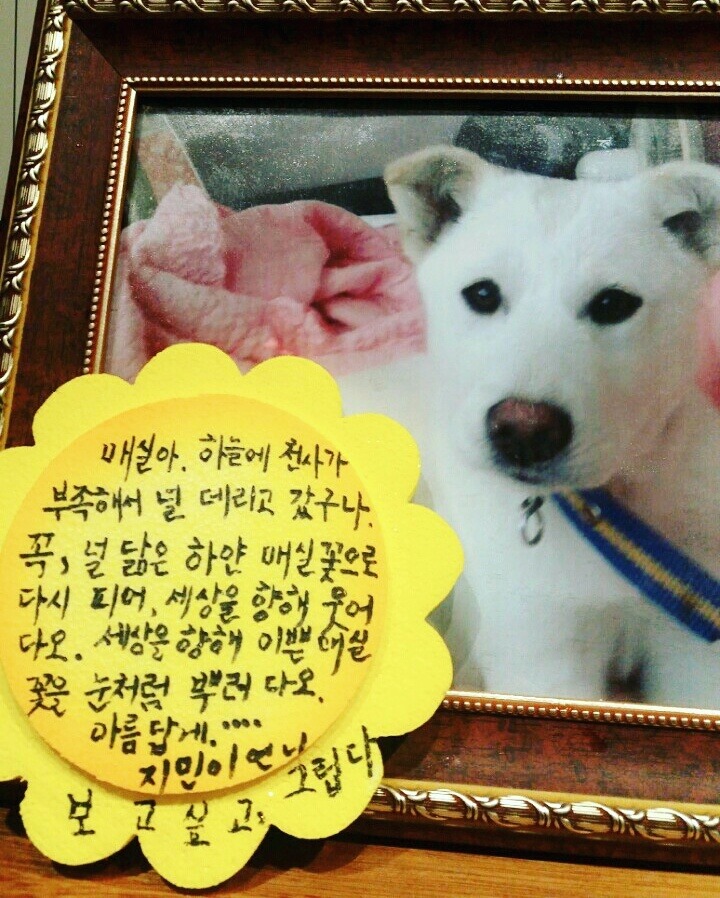 매실아. 하늘에 천사가
부족해서 널 데리고 갔구나.
꼭, 널 닮은 하얀 매실꽃으로
다시 피어, 세상을 향해 웃어
다오. 세상을 향해 이쁜 매실
꽃을 눈처럼 뿌려 다오.
아름답게....
지민이 언니
보고싶고, 그립다